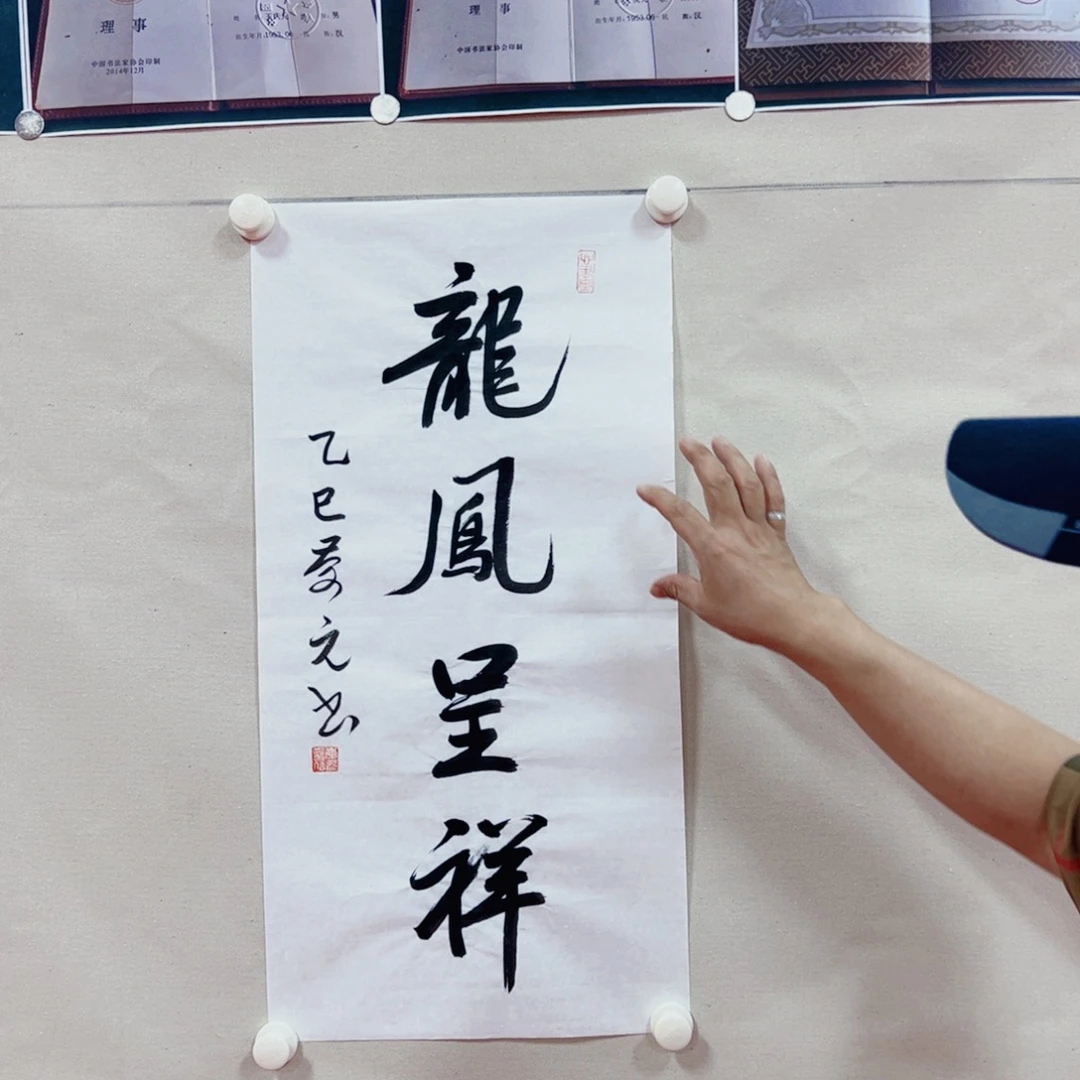 理事
中国书法家协会印制
2014年12月
男
出生年月:1953.06
族:汉
理事
中国书法家协会印制
出生年月:1953.06
族:汉
龍鳳呈祥
乙巳慶元书